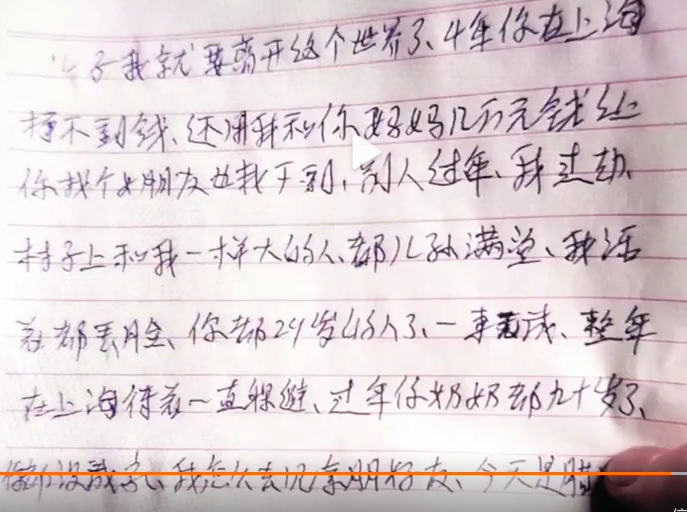 儿子我就要离开这个世界了、4年你在上海
挣不到钱、还用我和你好妈几万元钱让
你找个女朋友也找不到、别人过年、我过劫、
村子上和我一样大的人、都儿孙满堂、我活
着都丢脸、你都29岁的人了、一事无成、整年
在上海待着一直躲避、过年你奶奶都九十岁了、
你都没成家、我怎么去见亲朋好友、今天是腊